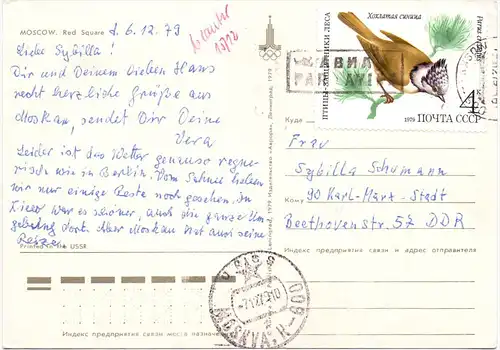 MOSCOW. Red Square
d. 6.12.79
Liebe Sybilla!
Dir und Deinem lieben Hans
recht herzliche Grüße aus
Moskau, sendet Dir Deine
Vera
Leider ist das Wetter genauso regne-
risch wie in Berlin. Vom Schnee haben
wir nur einige Reste noch gesehen. In
Kiew war es schöner, auch die ganze Um-
gebung dort. Aber Moskau hat auch seine
Reize.
Printed in the USSR
ПТИЦЫ-ЗАЩИТНИКИ ЛЕСА
Хохлатая синица
4К
1979 ПОЧТА СССР
Куда
Frau
Sybilla Schumann
Кому 90 Karl-Marx-Stadt
Beethovenstr. 57 DDR
Индекс предприятия связи и адрес отправителя
Индекс предприятия связи места назначения
-71279.10
MOSKVA